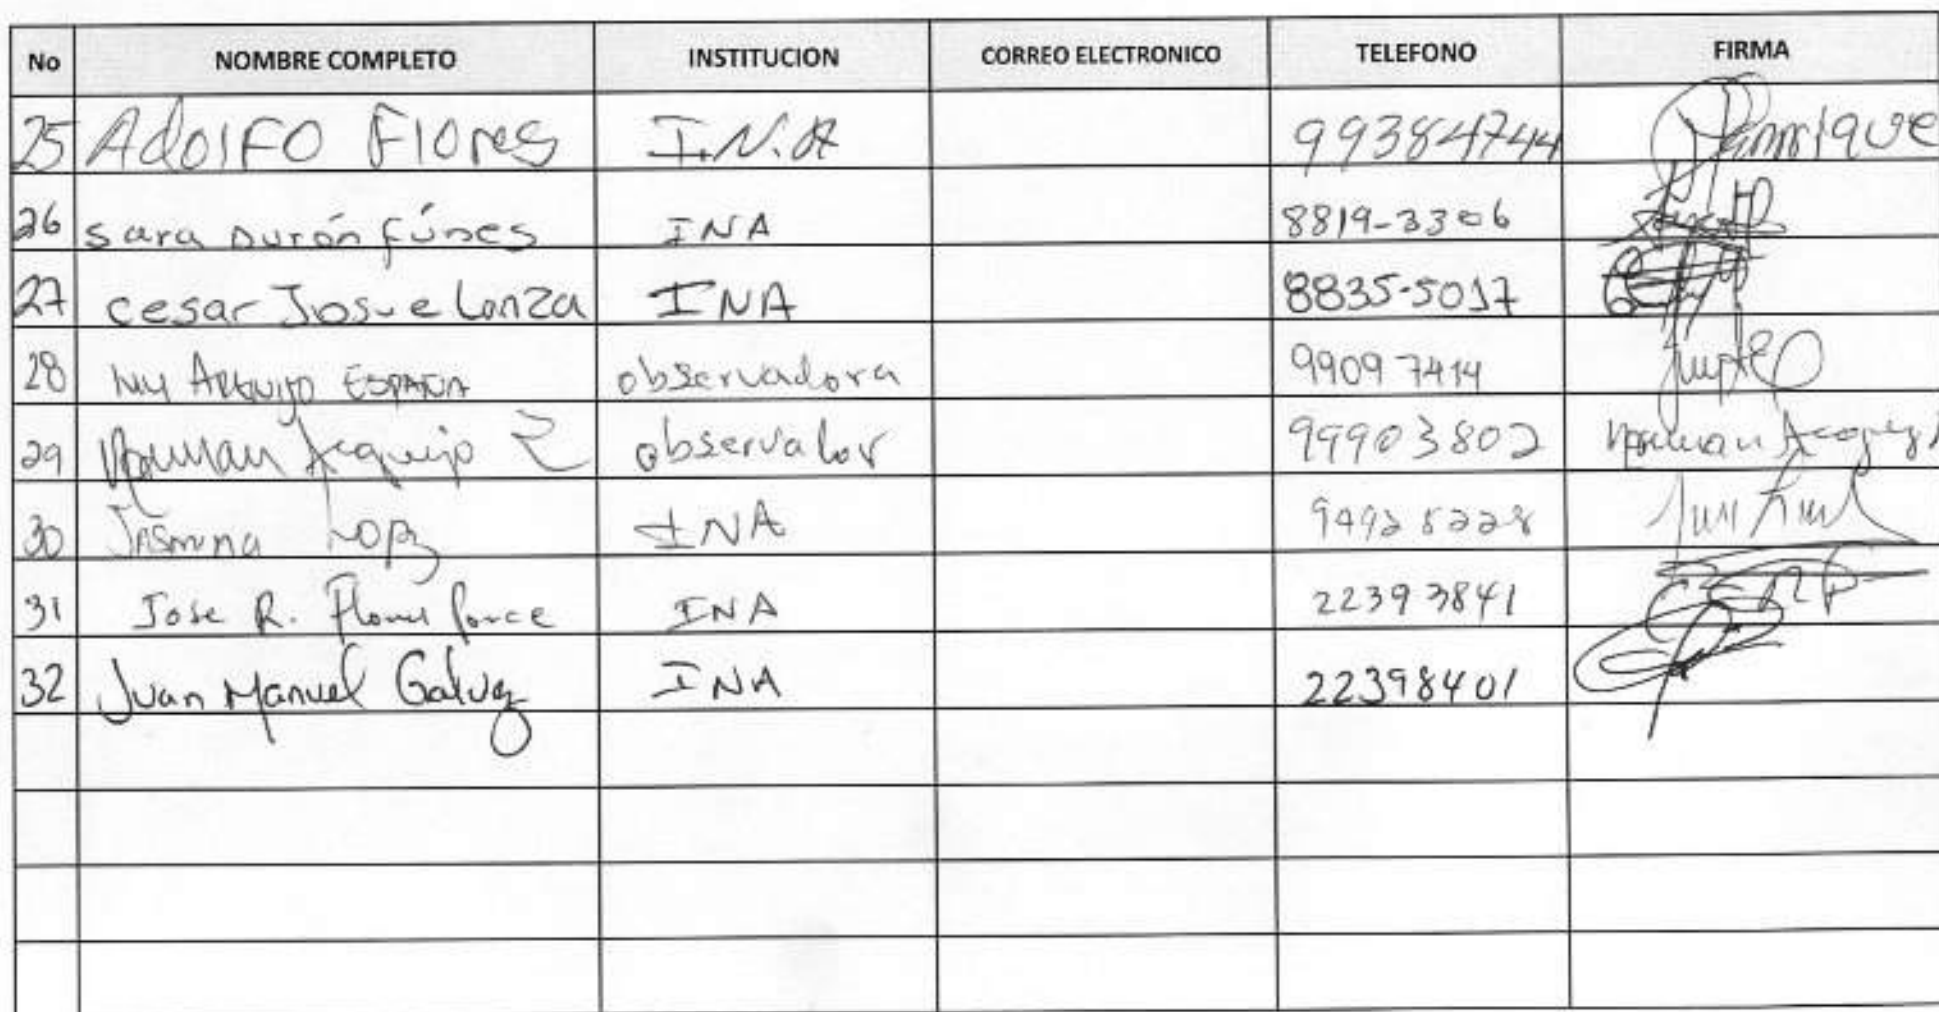 No NOMBRE COMPLETO INSTITUCION CORREO ELECTRONICO TELEFONO FIRMA
25 Adolfo Flores I.N.A 99384744
26 sara Durón fúnes INA 8819-3306
27 cesar Josue Lanza INA 8835-5017
28 ESPAÑA observadora 99097414
29 Norman observador 99903802
30 INA
31 Jose R. Flores Ponce INA 22393841
32 Juan Manuel Galvez INA 22398401